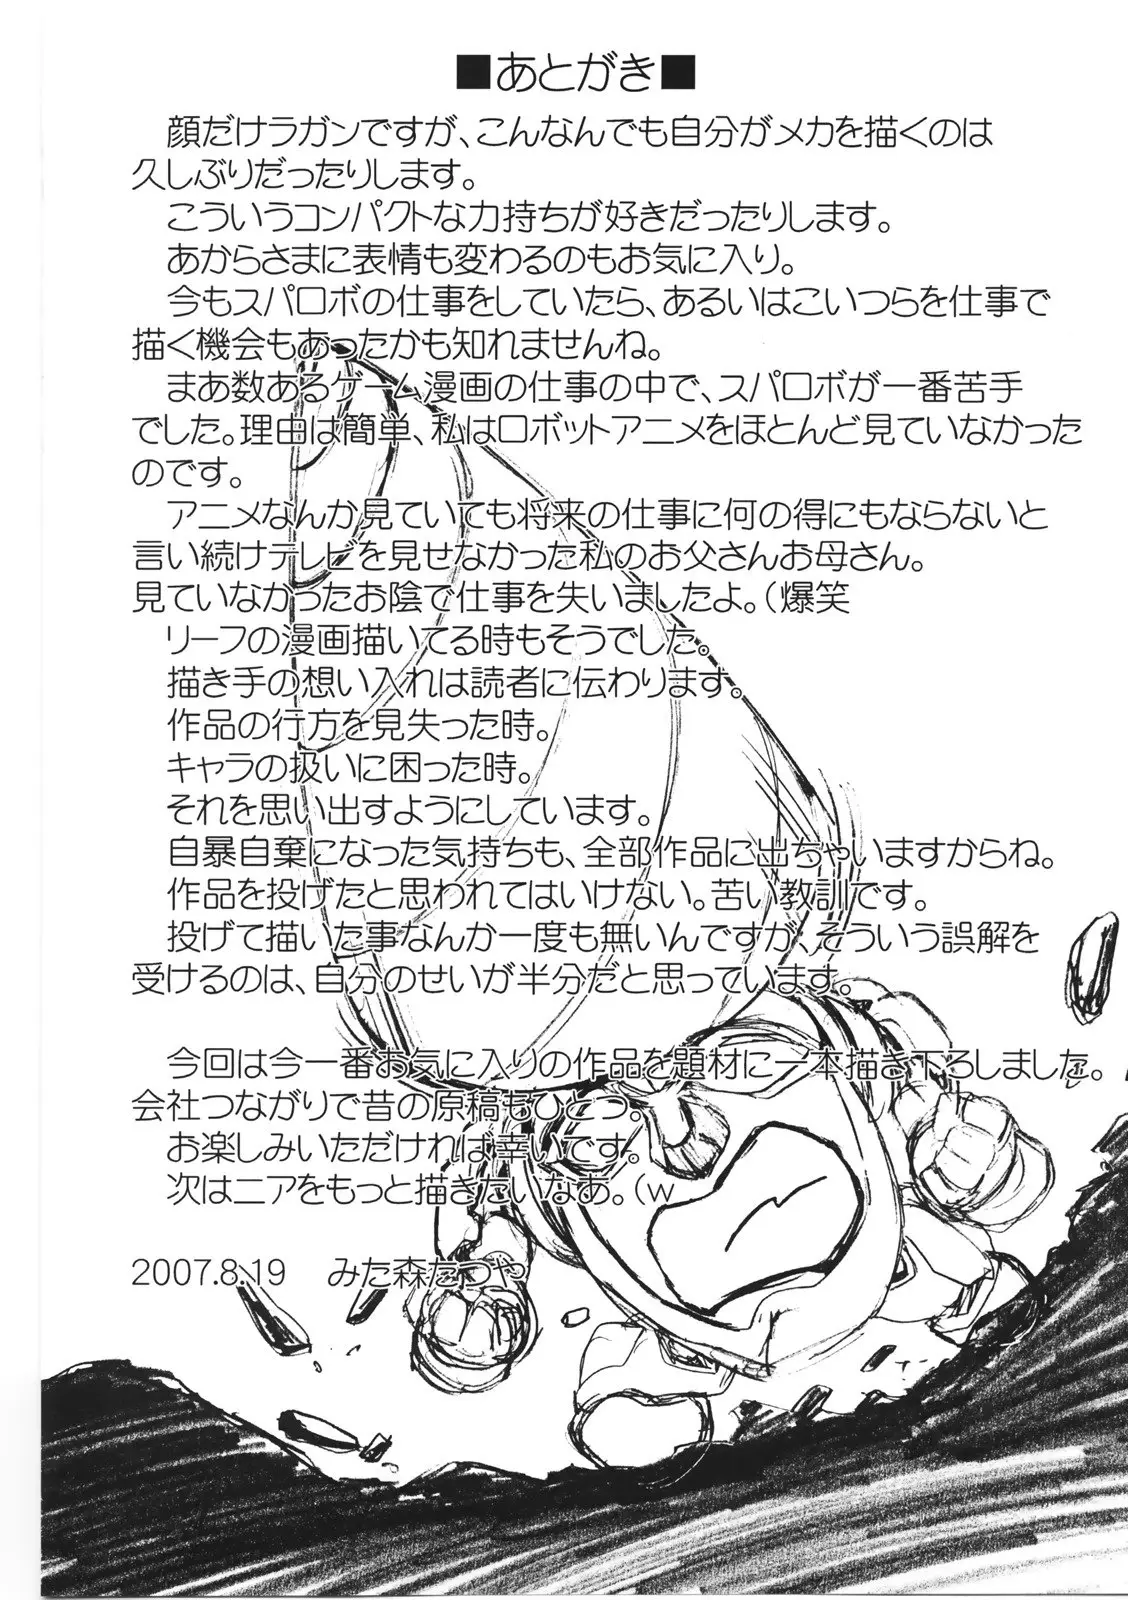 ■あとがき■
顔だけラガンですが、こんなんでも自分がメカを描くのは
久しぶりだったりします。
こういうコンパクトな力持ちが好きだったりします。
あからさまに表情も変わるのもお気に入り。
今もスパロボの仕事をしていたら、あるいはこいつらを仕事で
描く機会もあったかも知れませんね。
まあ数あるゲーム漫画の仕事の中で、スパロボが一番苦手
でした。理由は簡単、私はロボットアニメをほとんど見ていなかった
のです。
アニメなんか見ていても将来の仕事に何の得にもならないと
言い続けテレビを見せなかった私のお父さんお母さん。
見ていなかったお陰で仕事を失いましたよ。(爆笑
リーフの漫画描いてる時もそうでした。
描き手の想い入れは読者に伝わります。
作品の行方を見失った時。
キャラの扱いに困った時。
それを思い出すようにしています。
自暴自棄になった気持ちも、全部作品に出ちゃいますからね。
作品を投げたと思われてはいけない。苦い教訓です。
投げて描いた事なんか一度も無いんですが、そういう誤解を
受けるのは、自分のせいが半分だと思っています。
今回は今一番お気に入りの作品を題材に一本描き下ろしました。
会社つながりで昔の原稿もひとつ。
お楽しみいただければ幸いです。
次はニアをもっと描きたいなあ。(w
2007.8.19　みた森たつや